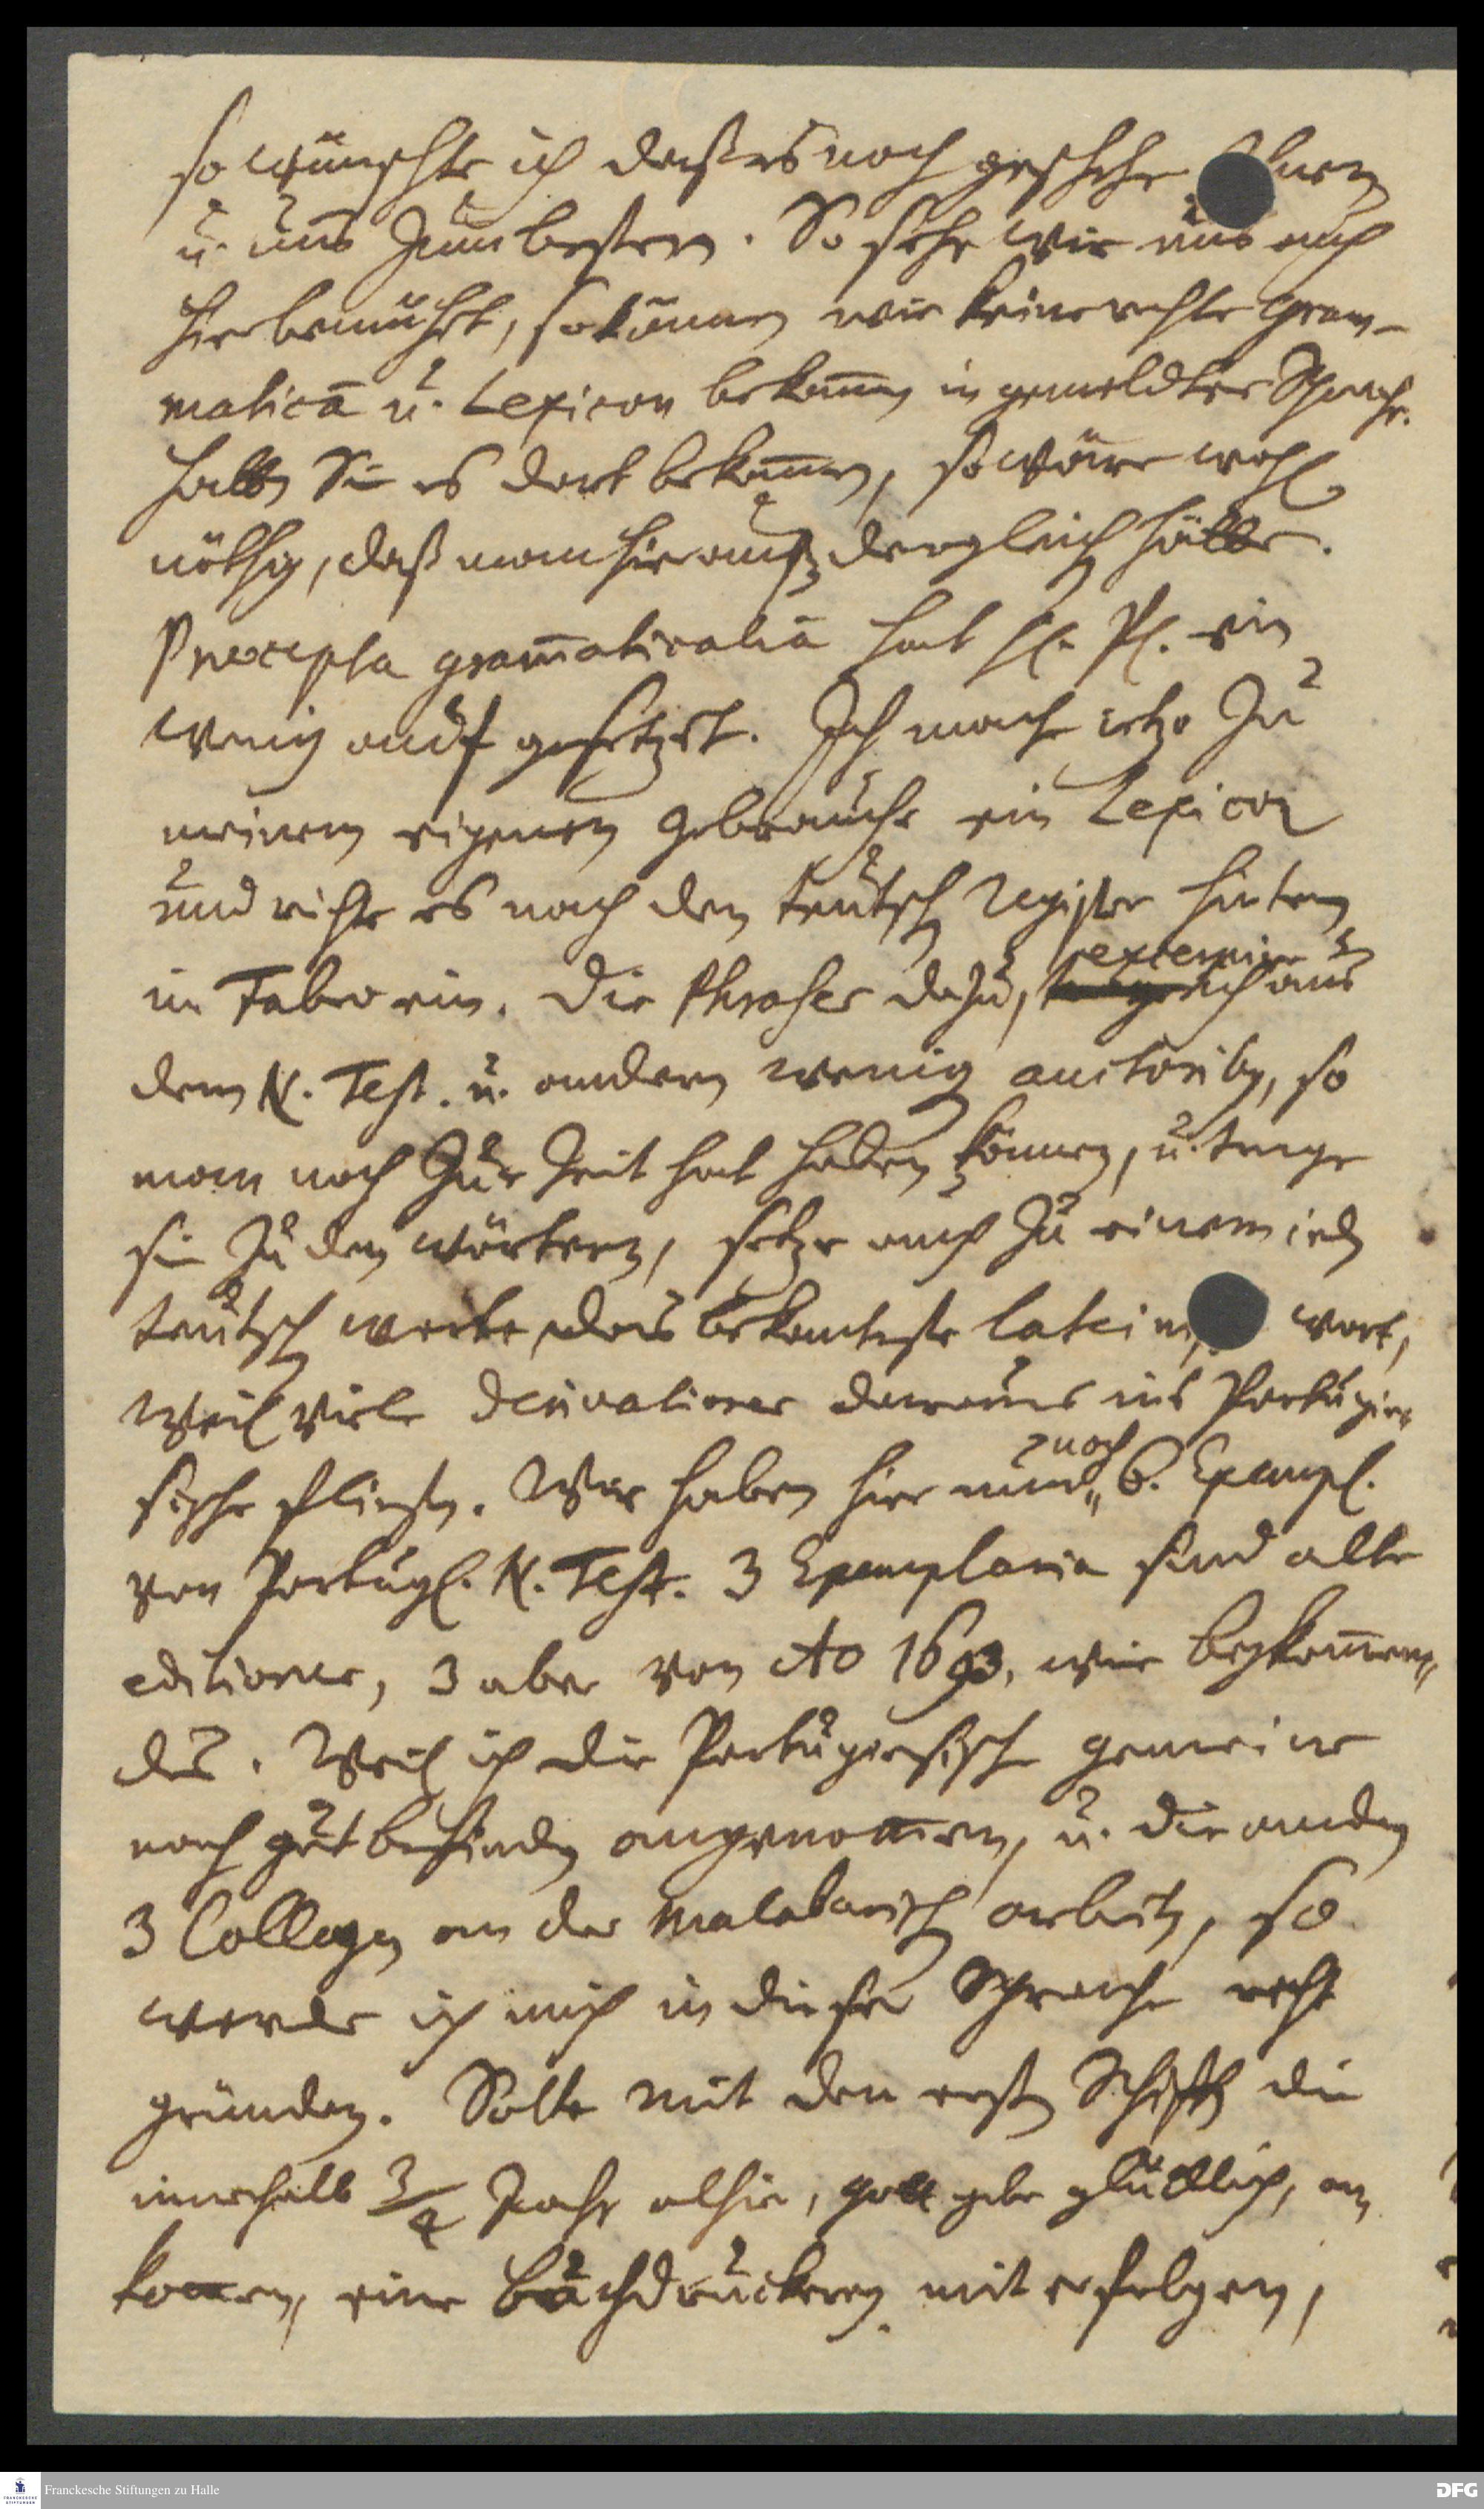 so wünschte ich daß es noch geschehe
u. uns zum besten. So sehr wir uns auch
hier bemüht, so können wir keine rechte Gram-
maticā u. Lexicon bekom̄en in gemeldter Sprache.
Hätten Sie es dort bekom̄en, so wäre wohl
nöthig, daß man hier auch dergleichen hätte.
Præcepta gram̄aticalia hat H. Pl. ein
wenig auff gesetzet. Ich mache ietzo zu
meinem eigenen Gebrauche ein Lexicon
und richte es nach den teutschen Register hinten
im Fabro ein. Die Phrases dazu, excerpire ich aus
dem N. Test. u. andern wenigen auctoribus, so
man noch zur Zeit hat haben können, u. trage
sie zu den wörtern, setze auch zu einem ieden
teutschen worte das bekanteste latein wort,
weil viele derivationes daraus ins Portugie-
sische fliessen. Wir haben hier nur noch 6. Exempl.
von Portugl. N. Test. 3 Exemplaria sind alte
editiones, 3 aber von Ao 1693. wie beykommen-
des. Weil ich die Portugiesische gemeine
nach gutbefinden angenom̄en, u. die anden
3 Collegen an der Malabarischen arbeiten, so
werde ich mich in dieser Sprache recht
gründen. Solte mit den ersten Schiffen die
innerhalb 3/4 Jahr alhie, gott gebe glücklich, an
kom̄en, eine Buchdruckerey mit erfolgen,
Franckesche Stiftungen zu Halle
DFG